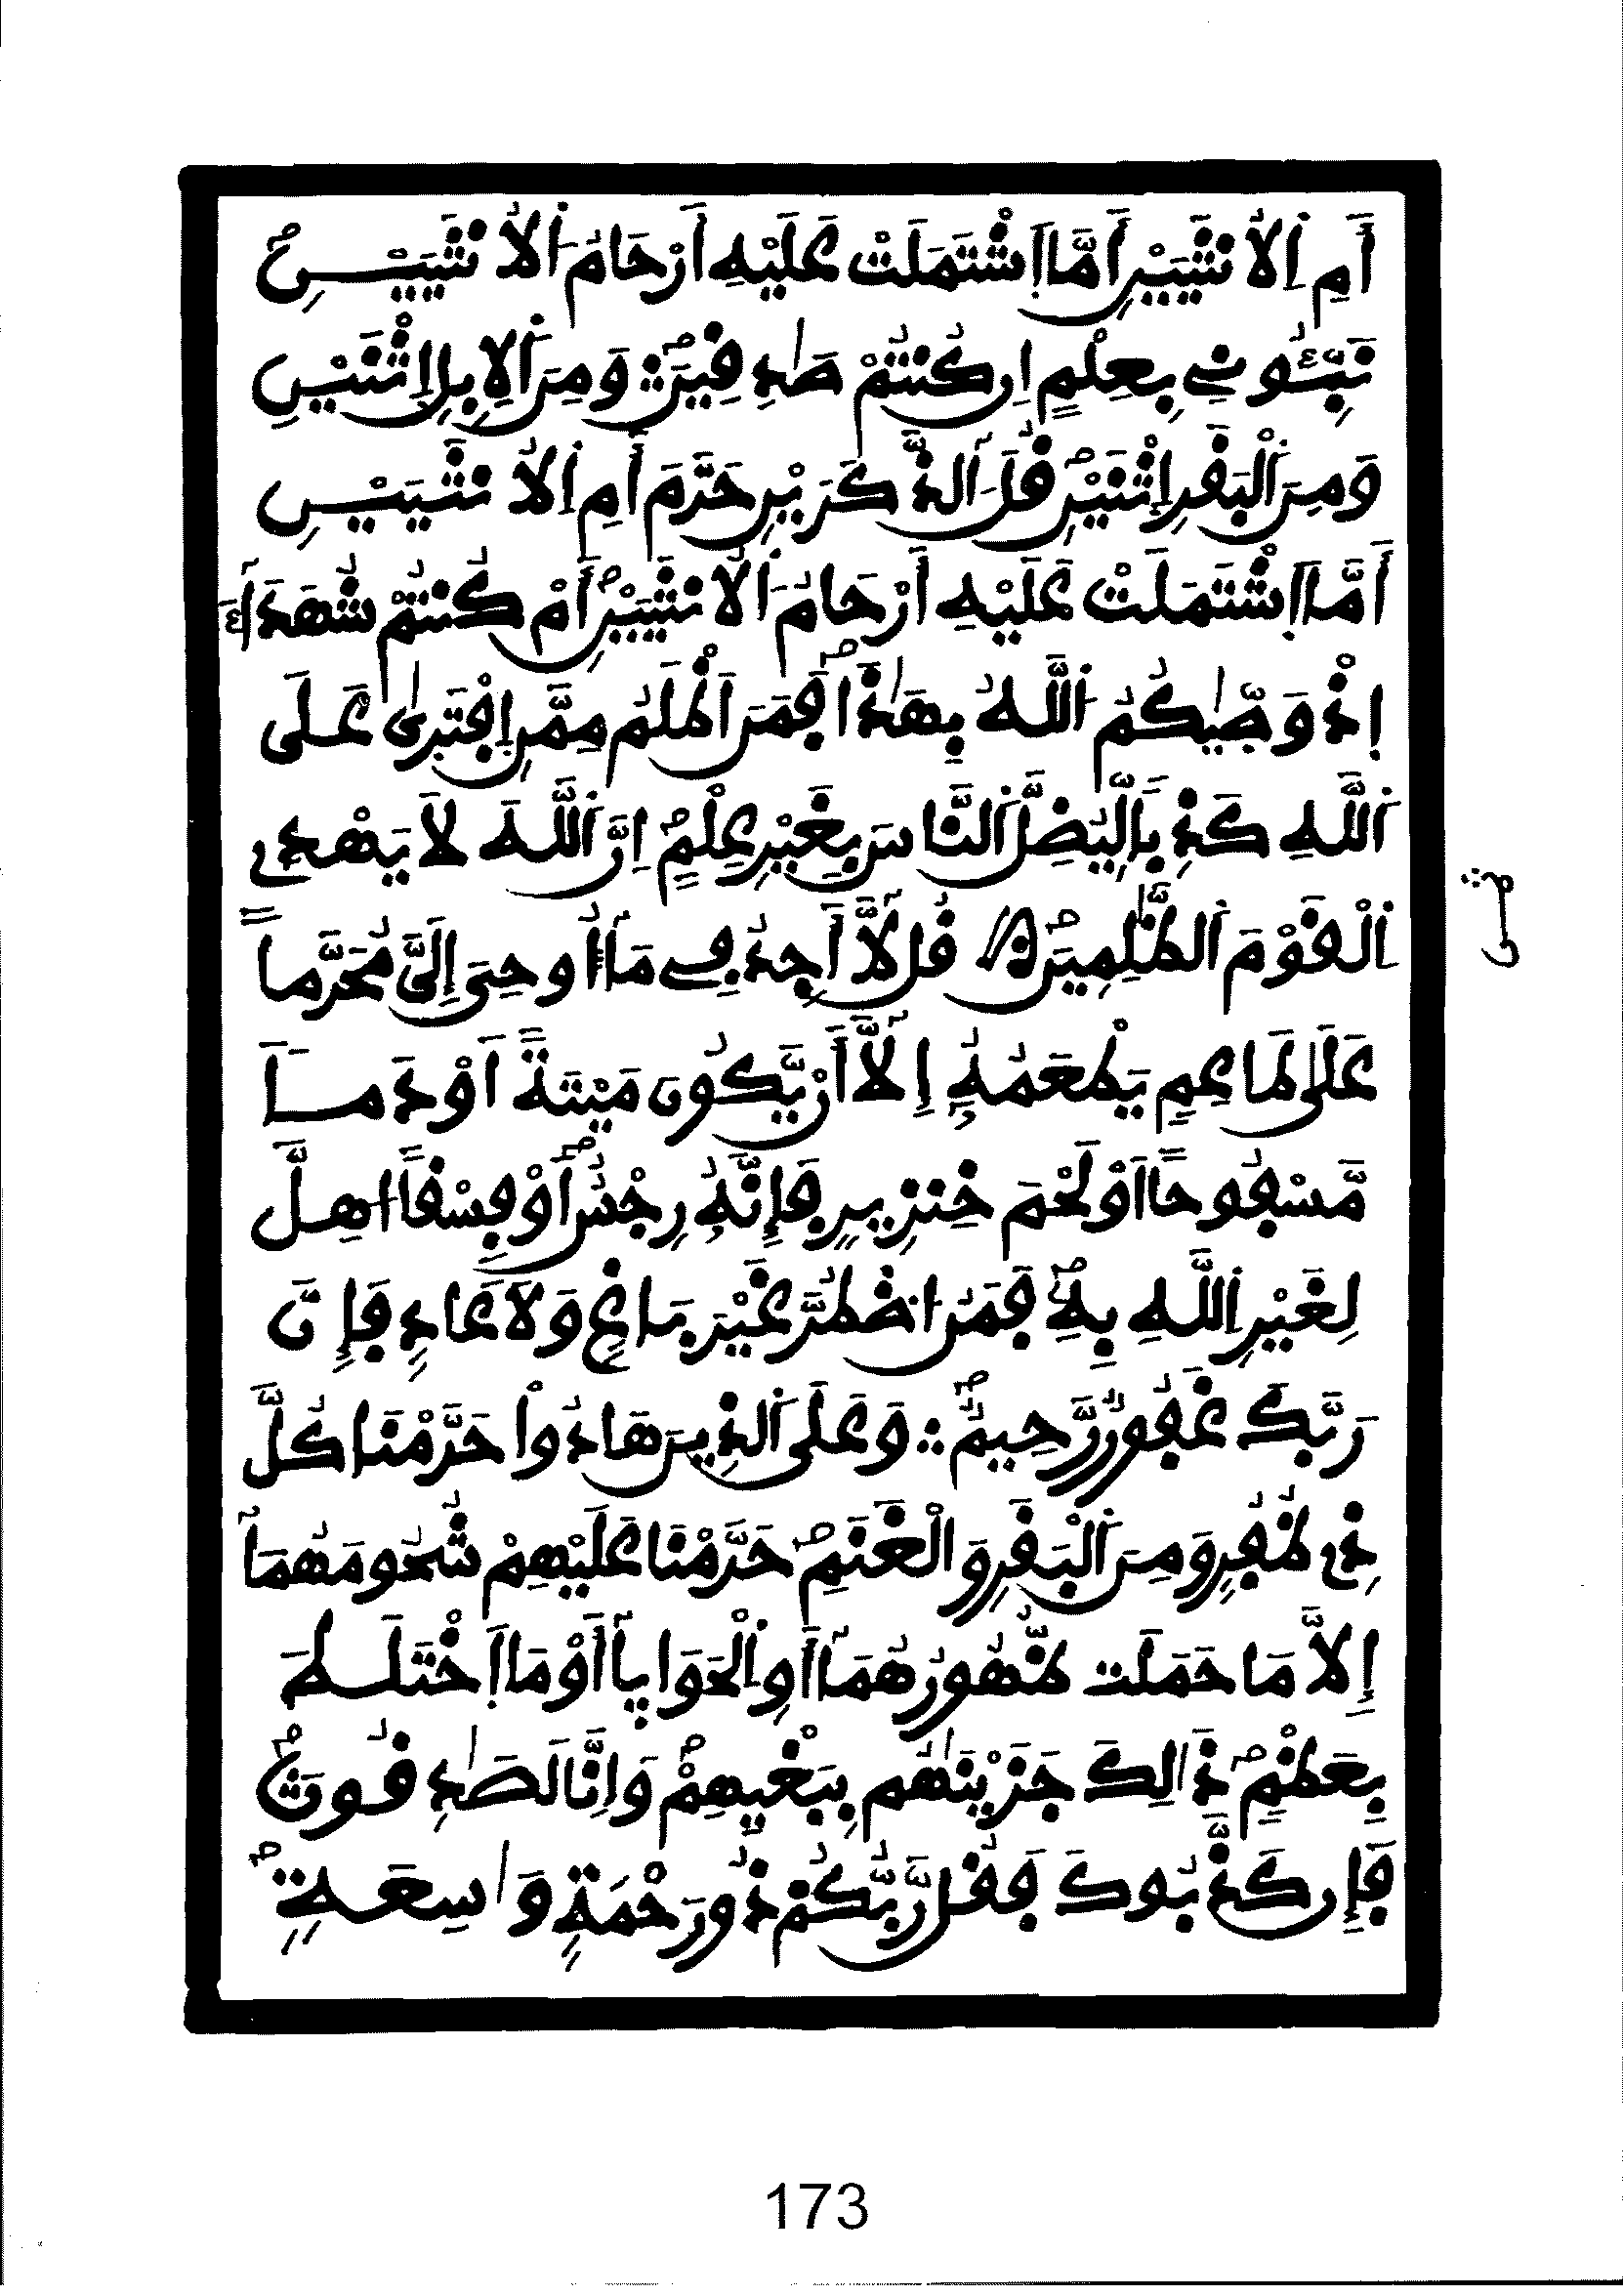 أَمِ اِ۬لُانثَيَيْنِ أَمَّا اَ۪شْتَمَلَتْ عَلَيْهِ أَرْحَامُ اُ۬لُانثَيَيْنِۖ
نَبِّـُٔونِے بِعِلْمٍ اِن كُنتُمْ صَٰدِفِينَۖ ۞ وَمِنَ اَ۬لِابِلِ اِ۪ثْنَيْنِ
وَمِنَ اَ۬لْبَفَرِ اِ۪ثْنَيْنِۖ فُلَ ـ آلذَّكَرَيْنِ حَرَّمَ أَمِ اِ۬لُانثَيَيْنِ
أَمَّا اَ۪شْتَمَلَتْ عَلَيْهِ أَرْحَامُ اُ۬لُانثَيَيْنِۖ أَمْ كُنتُمْ شُهَدَآءَ
اِذْ وَصّٰۭيكُمُ اُ۬للَّهُ بِهَٰذَاۖ فَمَنَ اَظْلَمُ مِمَّنِ اِ۪فْتَرٜىٰ عَلَى
اَ۬للَّهِ كَذِباٗ لِّيُضِلَّ اَ۬لنَّاسَ بِغَيْرِ عِلْمٍۖ اِنَّ اَ۬للَّهَ لَا يَهْدِے
اِ۬لْفَوْمَ اَ۬لظَّٰلِمِينَۖ فُل لَّآ أَجِدُ فِے مَآ أُوحِيَ إِلَيَّ مُحَرَّماً
عَلَىٰ طَاعِمٖ يَطْعَمُهُۥٓ إِلَّآ أَنْ يَّكُونَ مَيْتَةً اَوْ دَماٗ
مَّسْفُوحاً اَوْ لَحْمَ خِنزِيرٖ فَإِنَّهُۥ رِجْسٌۖ اَوْ فِسْفاً ا۟هِلَّ
لِغَيْرِ اِ۬للَّهِ بِهِۦۖ فَمَنُ اُ۟ضْطُرَّ غَيْرَ بَاغٖ وَلَا عَادٖ فَإِنَّ
رَبَّكَ غَفُورٞ رَّحِيمٞۖ ۞ وَعَلَى اَ۬لذِينَ هَادُوا۟ حَرَّمْنَا كُلَّ
ذِے ظُفُرٖ وَمِنَ اَ۬لْبَفَرِ وَالْغَنَمِۖ حَرَّمْنَا عَلَيْهِمْ شُحُومَهُمَآ
إِلَّا مَا حَمَلَت ظُّهُورُهُمَآ أَوِ اِ۬لْحَوَايَآ أَوْ مَا اَ۪خْتَلَطَ
بِعَظْمٖۖ ذَٰلِكَ جَزَيْنَٰهُم بِبَغْيِهِمْۖ وَإِنَّا لَصَٰدِفُونَۖ
فَإِن كَذَّبُوكَ فَفُل رَّبُّكُمْ ذُو رَحْمَةٖ وَٰسِعَةٖۖ
173